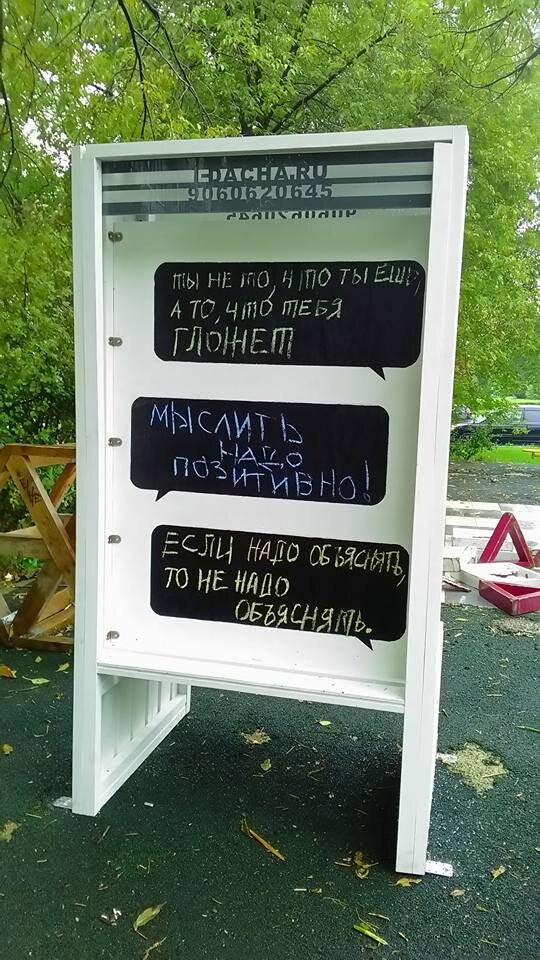 I-DACHA.RU
9060620645
9060620645
ТЫ НЕ ТО, ЧТО ТЫ ЕШЬ,
А ТО, ЧТО ТЕБЯ
ГЛОЖЕТ
МЫСЛИТЬ
НАДО
ПОЗИТИВНО!
ЕСЛИ НАДО ОБЪЯСНЯТЬ,
ТО НЕ НАДО
ОБЪЯСНЯТЬ.